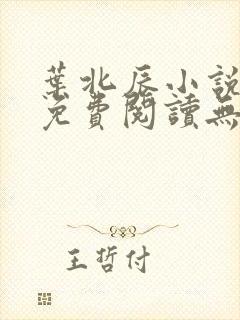 葉北辰小說
免費閱讀無
王哲付